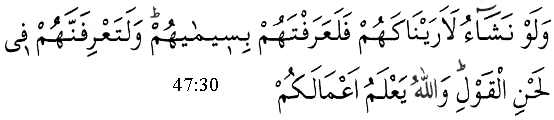 وَلَوْ نَشَٓاءُ لَاَرَيْنَاكَهُمْ فَلَعَرَفْتَهُمْ بِس۪يمٰيهُمْۜ وَلَتَعْرِفَنَّهُمْ ف۪ي
لَحْنِ الْقَوْلِۜ وَاللّٰهُ يَعْلَمُ اَعْمَالَكُمْ
47:30